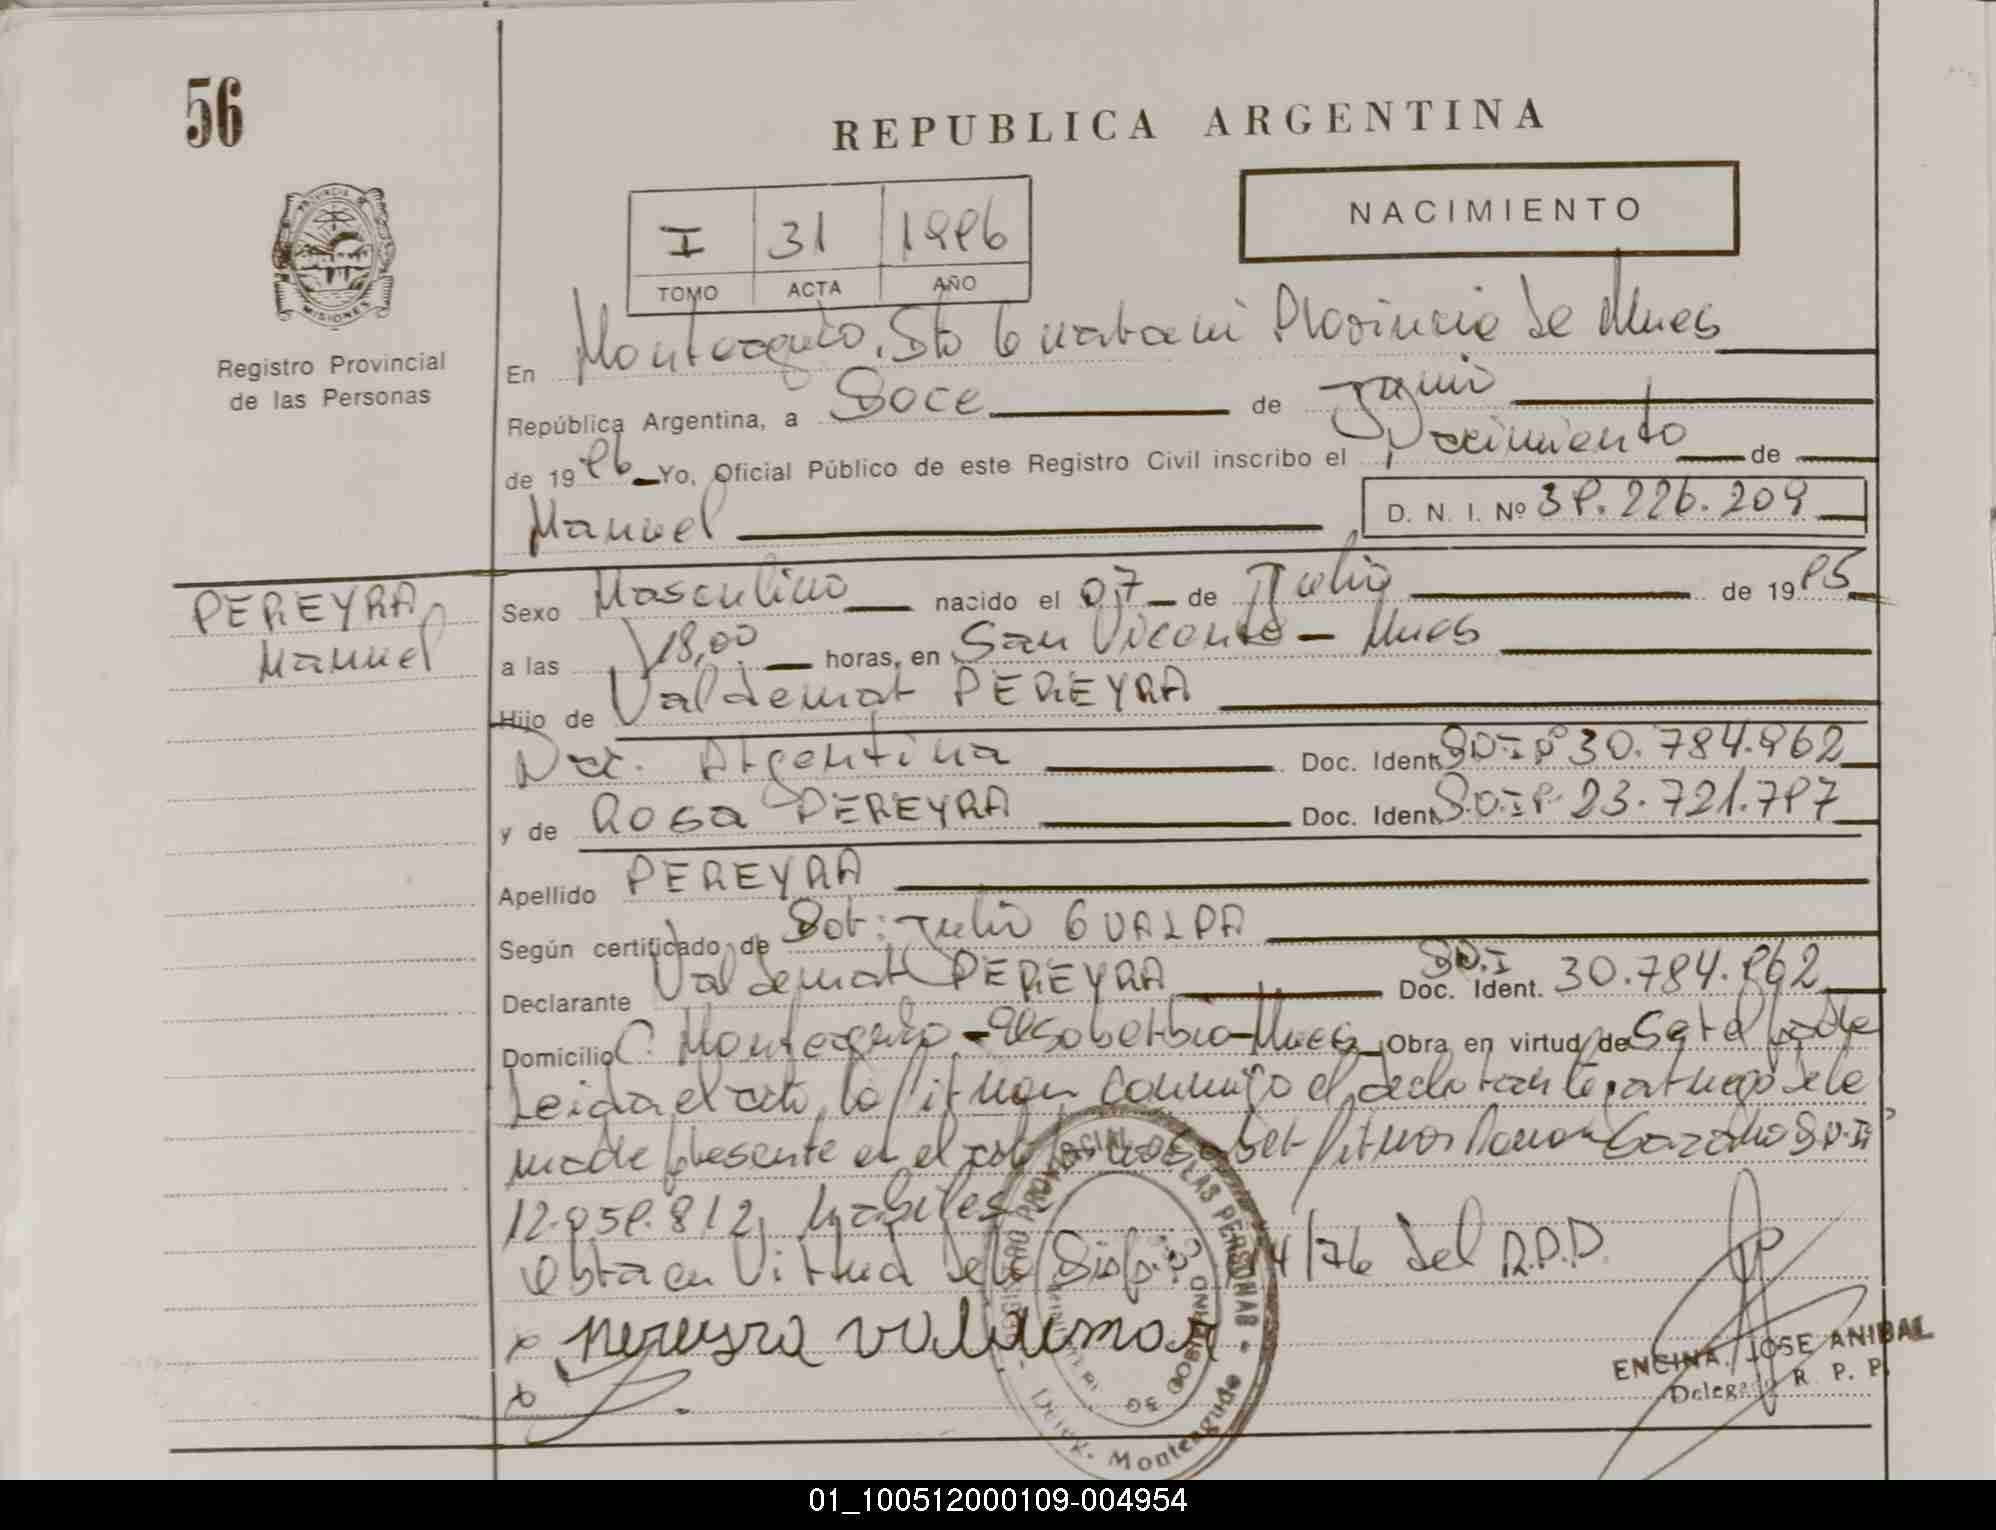 56
REPUBLICA ARGENTINA
NACIMIENTO
I 31 1996
TOMO ACTA AÑO
PROVINCIA
MISIONES
Registro Provincial
de las Personas
En Monteagudo, Dto Guarani Provincia de Mnes
República Argentina, a Doce de Junio
de 1996 Yo, Oficial Público de este Registro Civil inscribo el Nacimiento de
Manuel D. N. I. Nº 39.226.209
PEREYRA
Manuel
Sexo Masculino nacido el 07 de Julio de 1995
a las 18,00 horas, en San Vicente - Mnes
Hijo de Valdemar PEREYRA
Nac. Argentina Doc. Ident. D.N.I Nº 30.784.962
y de Rosa PEREYRA Doc. Ident. D.N.I Nº 23.721.797
Apellido PEREYRA
Según certificado de Dor: Julio GUALPA
Declarante Valdemar PEREYRA D.N.I Doc. Ident. 30.784.962
Domicilio C. Monteagudo - Elsoberbio - Mnes Obra en virtud de Ser el padre
Leida el acta, la firman conmigo el declarante, a ruego de la
madre presente en el acto por no saber firmar Ramon D.N.I
12.059.812, habiles
Obra en Virtud de la Disp. 14/76 del R.P.P.
x pereyra valdemar
x
REGISTRO PROVINCIAL DE LAS PERSONAS
MINISTERIO DE GOBIERNO
Deleg. Monteagudo
ENCINA, JOSE ANIBAL
Delegado R. P. P.
01_100512000109-004954